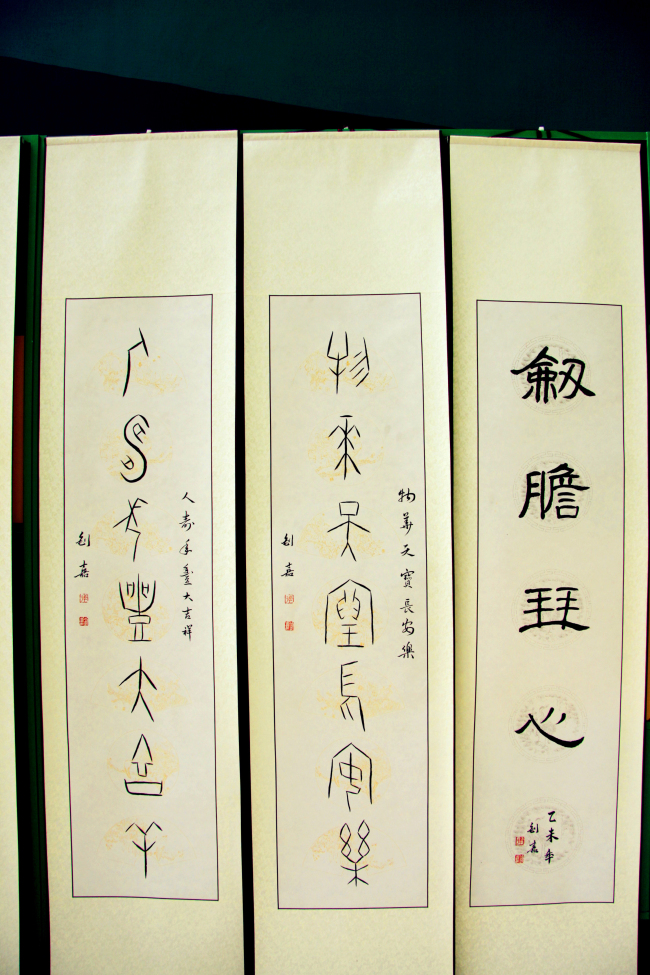 劔膽琴心
乙未年
刘嘉
物華天寶長安樂
物華天寶長安樂
刘嘉
人壽年豐大吉羊
人壽年豐大吉祥
刘嘉